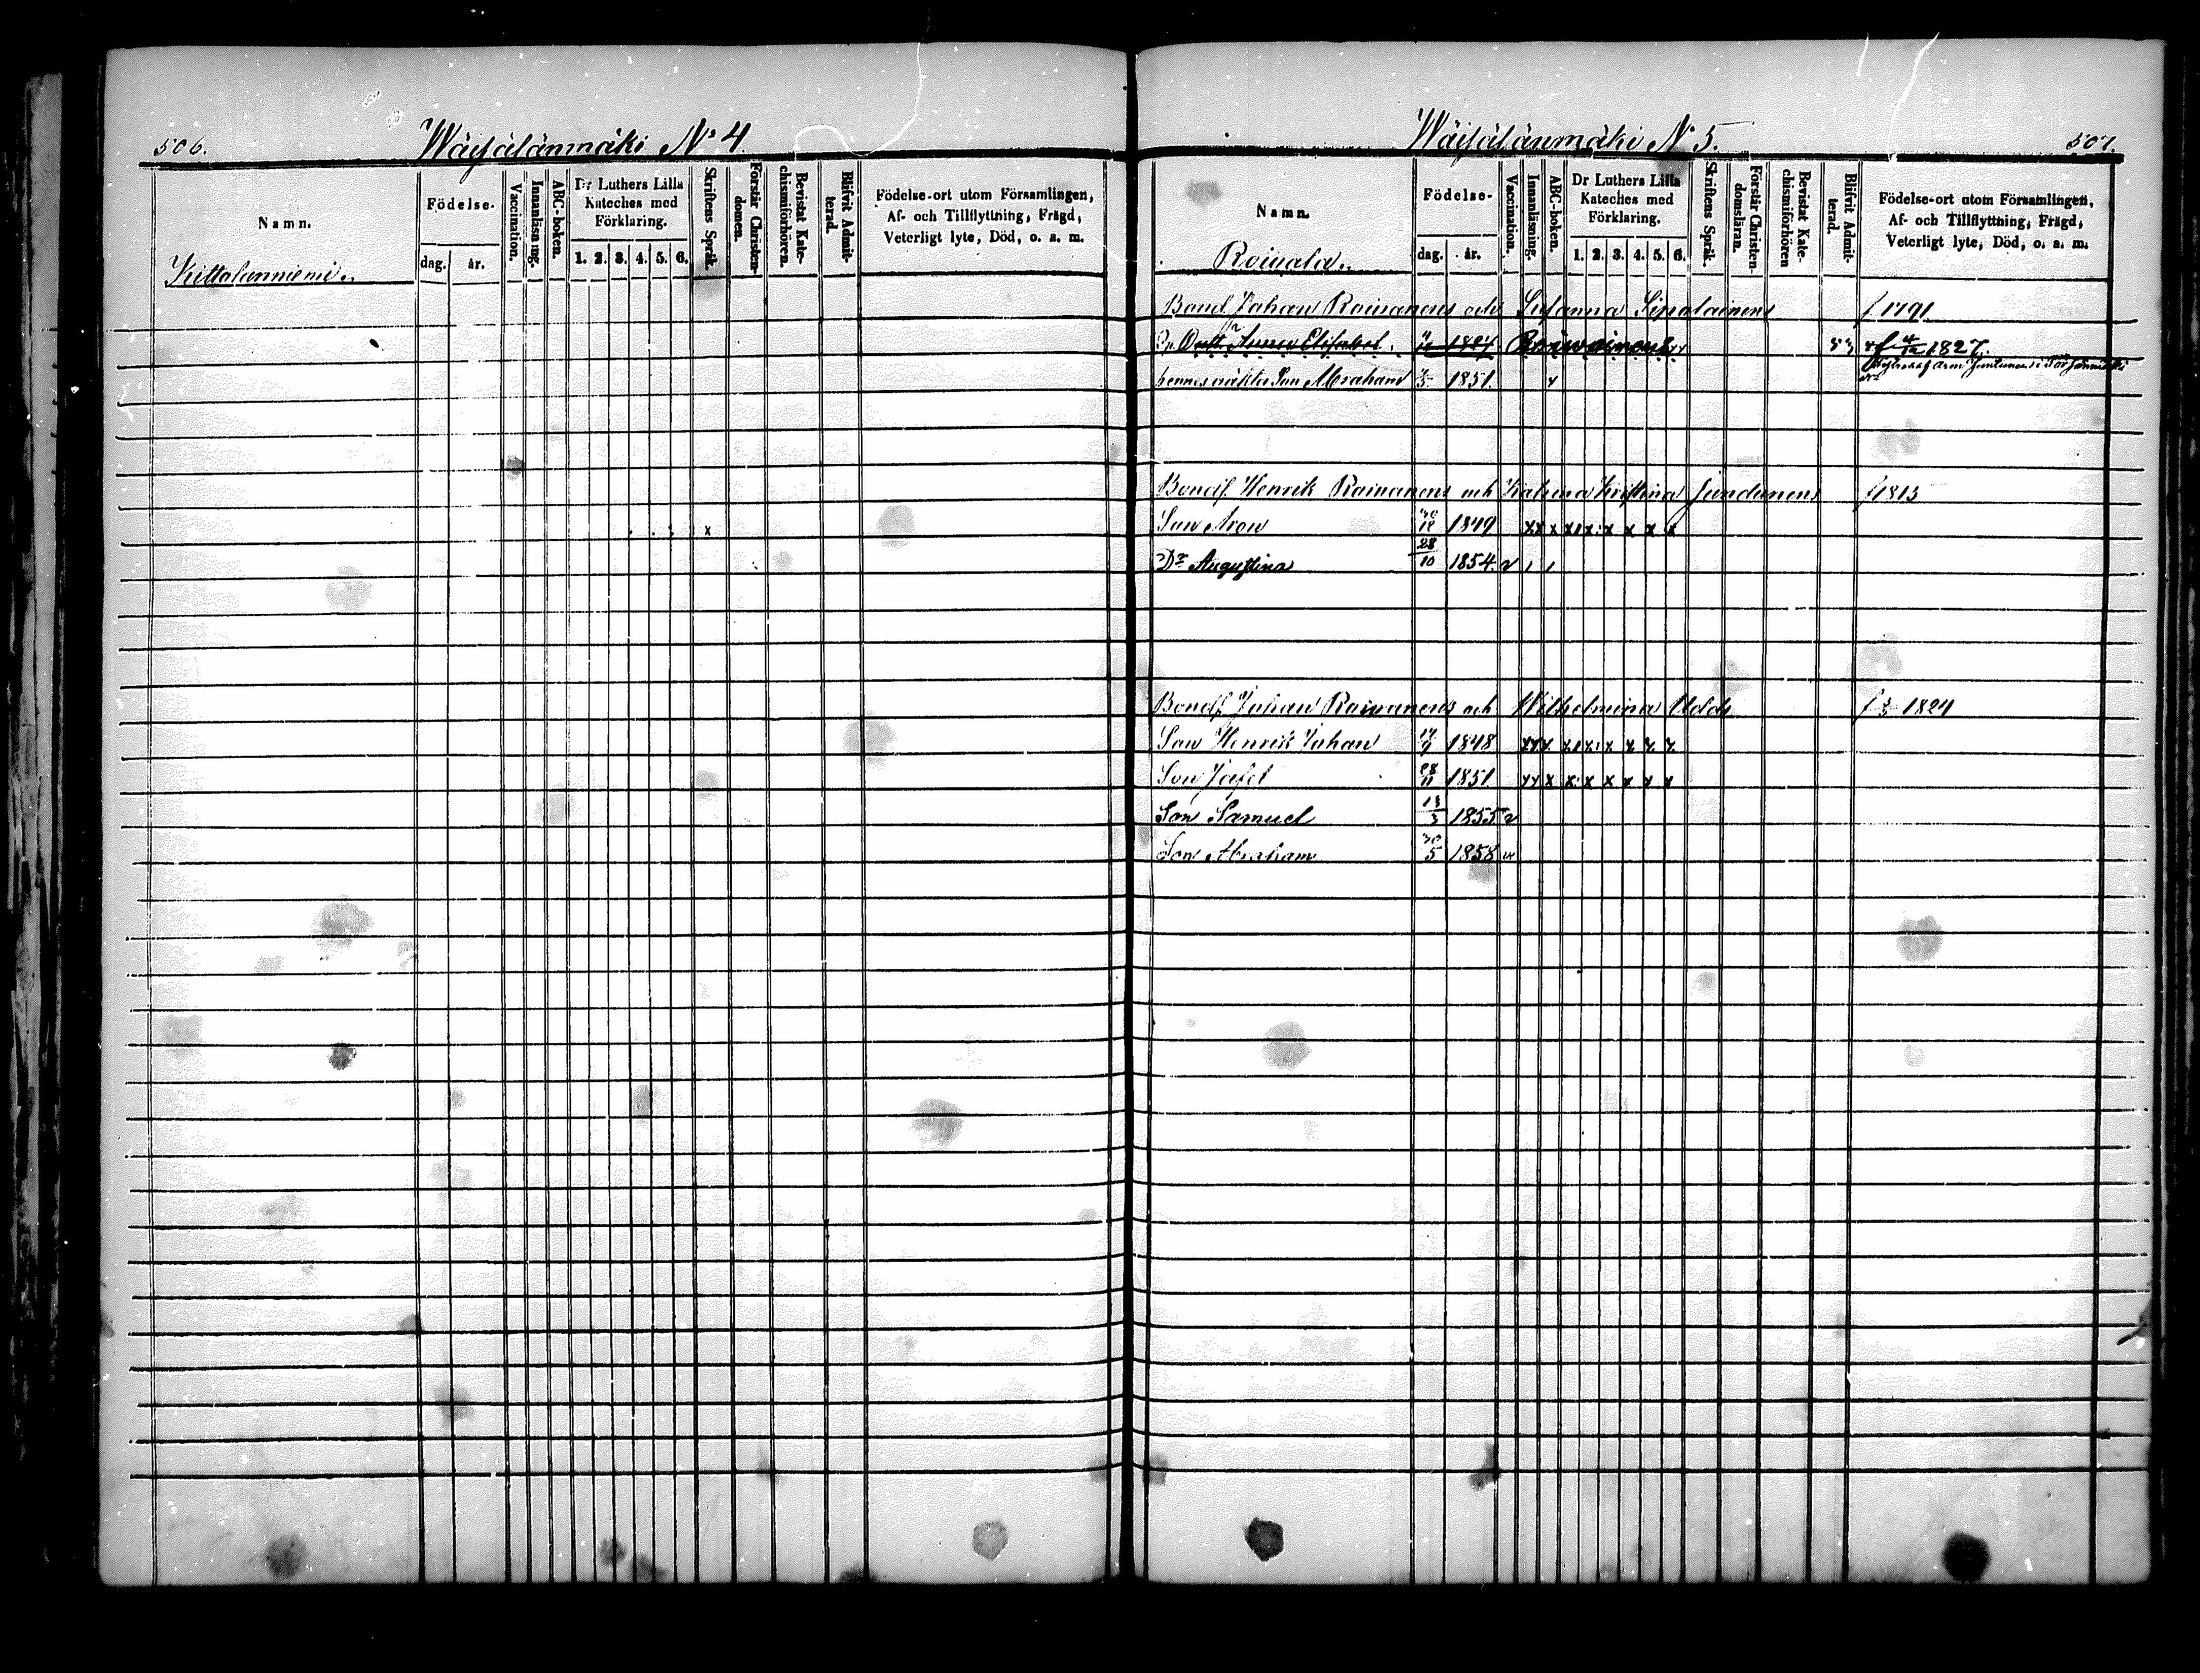 506.
Wäisälänmäki No 4
Namn.
Födelse-
dag.
år.
Vaccination.
Innanläsning.
ABC-boken.
Dr Luthers Lilla
Kateches med
Förklaring.
1. 2. 3. 4. 5. 6.
Skriftens Språk.
Förstår Christen-
domen.
Bevistat Kate-
chismiförhören.
Blifvit Admit-
terad.
Födelse-ort utom Församlingen,
Af- och Tillflyttning, Frägd,
Veterligt lyte, Död, o. s. m.
x
Wäisälänmäki N 5.
507.
Namn.
Roinala.
Födelse-
dag.
år.
Vaccination.
Innanläsning.
ABC-boken.
Dr Luthers Lilla
Kateches med
Förklaring.
1. 2. 3. 4. 5. 6.
Skriftens Språk.
Förstår Christen-
domsläran.
Bevistat Kate-
chismiförhören
Blifvit Admit-
terad.
Födelse-ort utom Församlingen,
Af- och Tillflyttning, Frägd,
Veterligt lyte, Död, o. s. m.
Bond. Johan Roinanens och Susanna f 1791
Anna Elisabet 1827 53 1827.
hennes oäkta Son Abraham 1851
Bondf. Henrik Roinanens och Katrina Kristina f 1813
Son Aron 1849 x x x x x x x x x
Dr Augustina 28/10 1854 v
Bondf. Johan Roinanens och Wilhelmina Udds f 1824
Son Henrik Johan 1848 x x x x x x x x x
Son Josef 28/11 1851 x x x x x x x x x
Son Samuel 13/3 1855 v
Son Abraham 30/5 1858 v